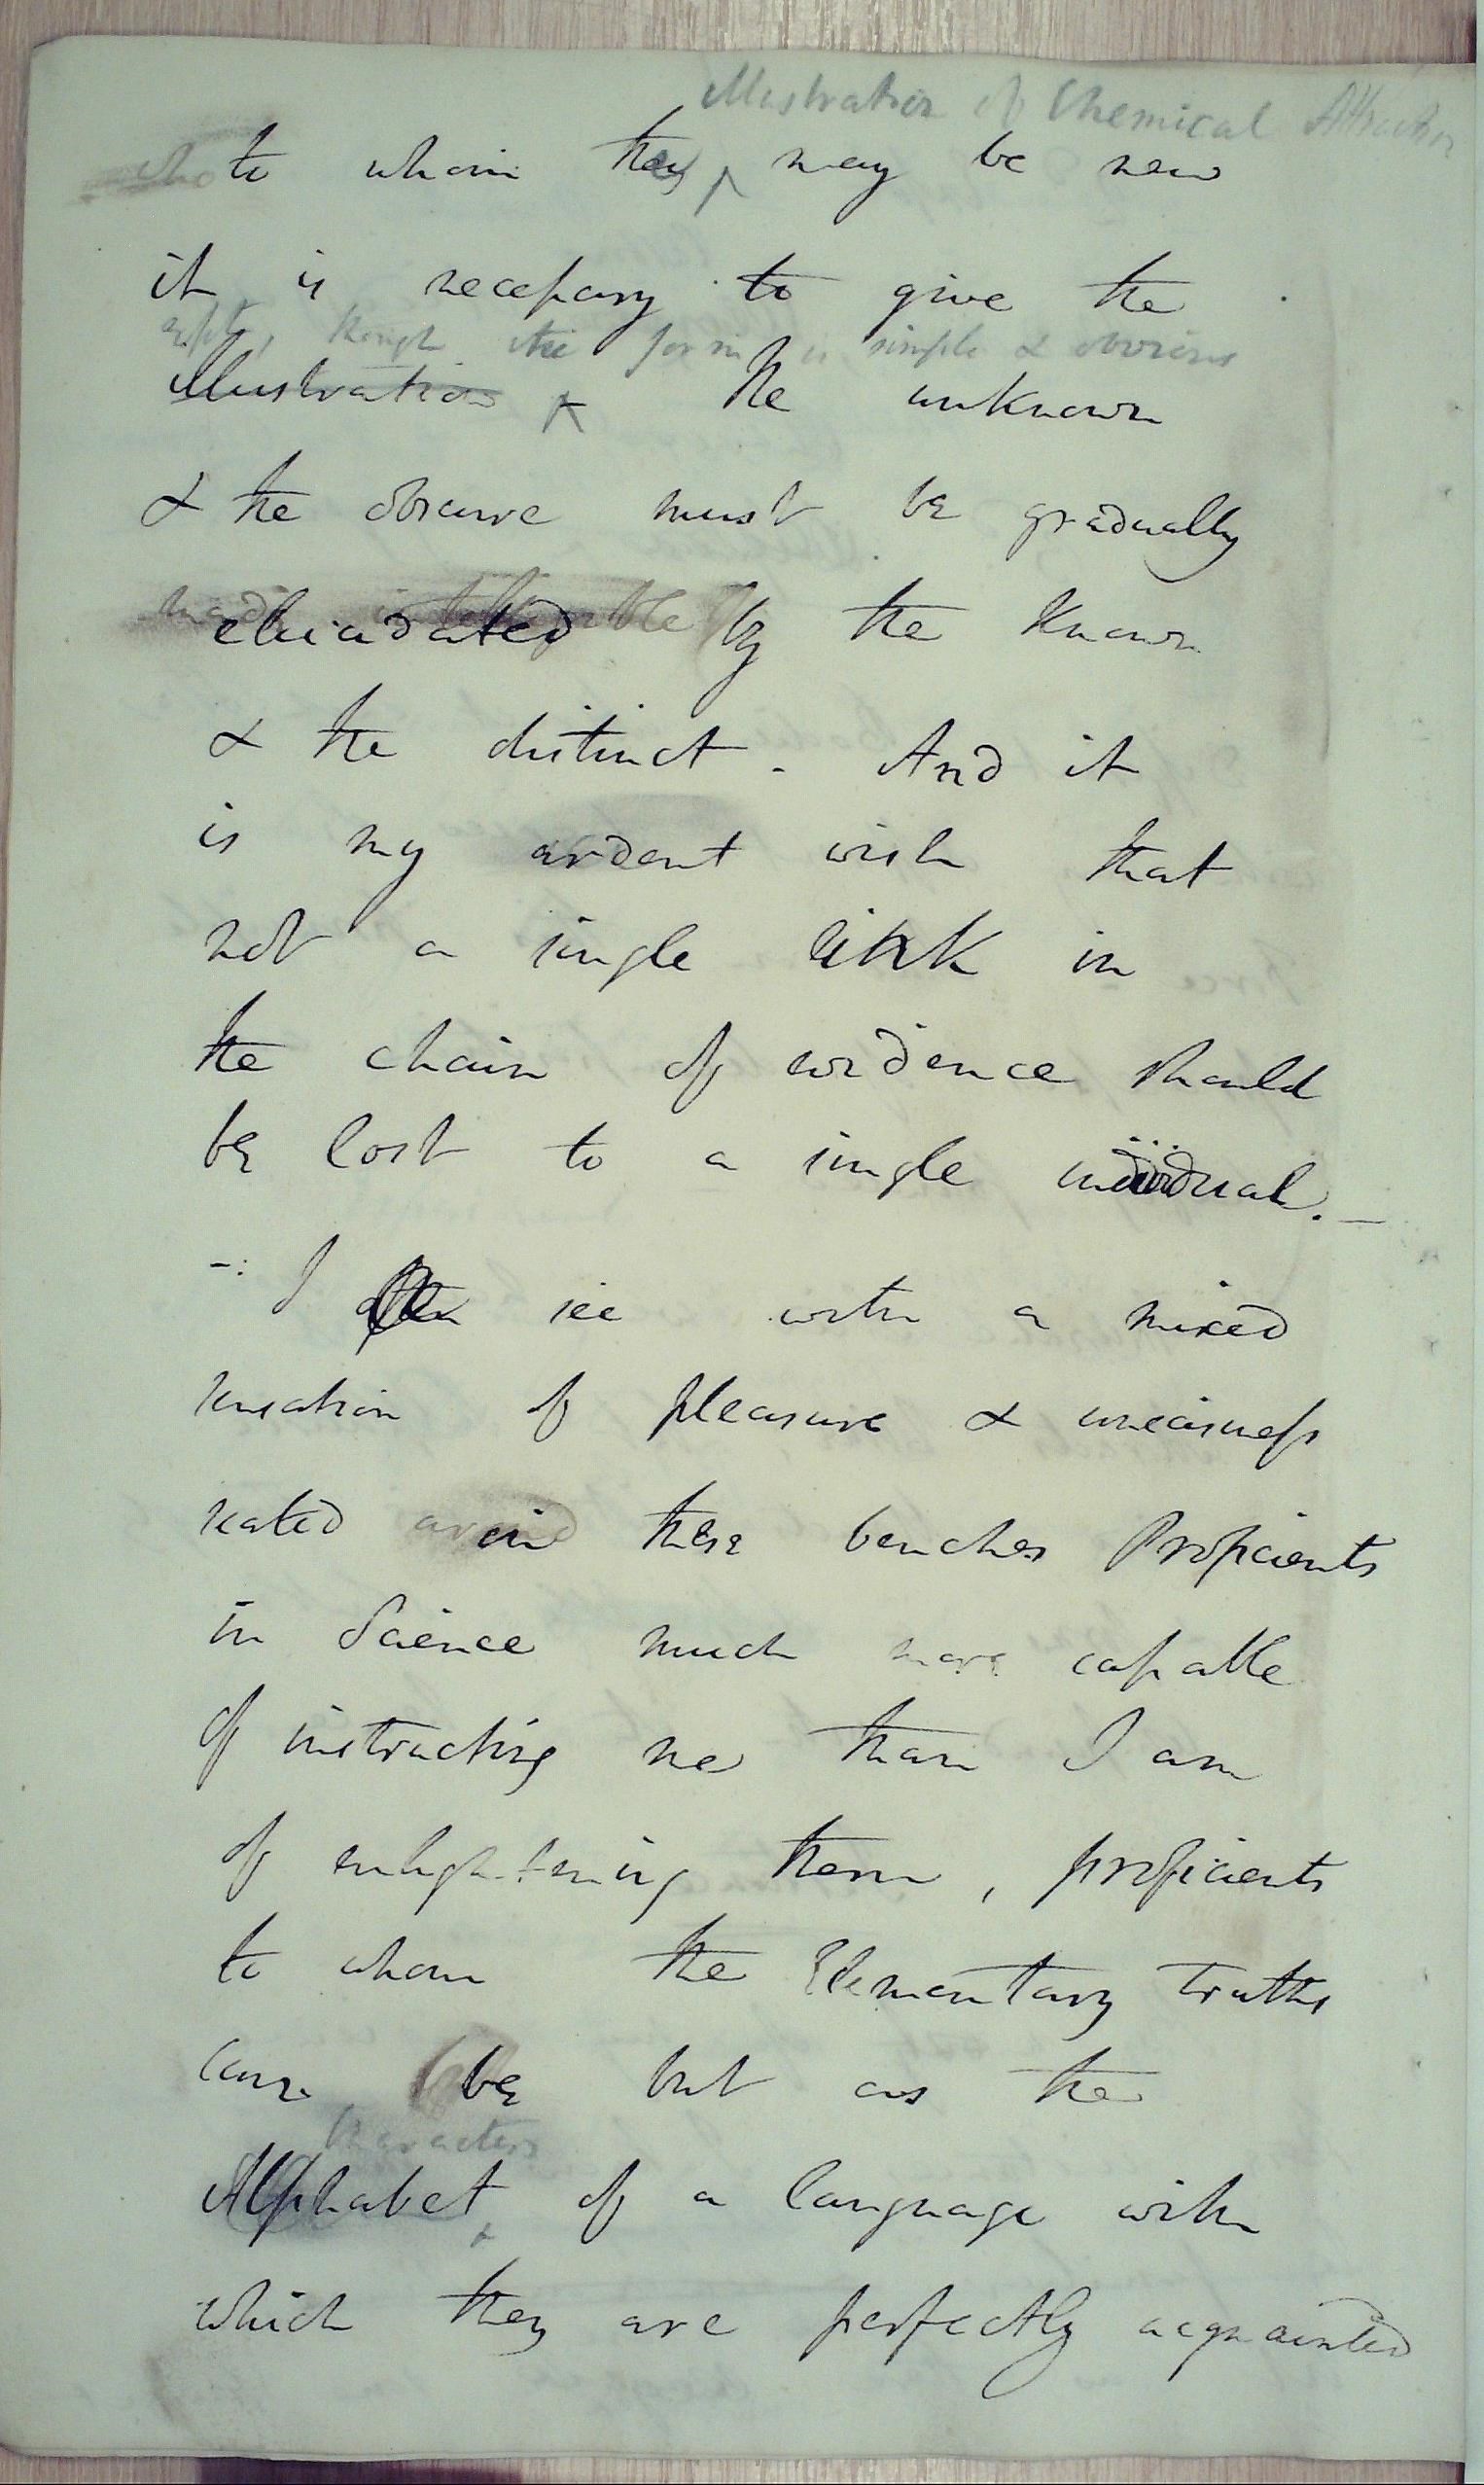 Illustration of Chemical Attraction
to whom they may be new
it is necessary to give the
though the form is simple & obvious
illustration the unknown
& the obscure must be gradually
elucidated by the known
& the distinct. And it
is my ardent wish that
not a single link in
the chain of evidence should
be lost to a single individual. _
-: I often see with a mixed
sensation of pleasure & uneasiness
seated on these benches Proficients
in Science much more capable
of instructing me than I am
of enlightening them, proficients
to whom the Elementary truths
can be but as the
Characters
Alphabet of a language with
which they are perfectly acquainted